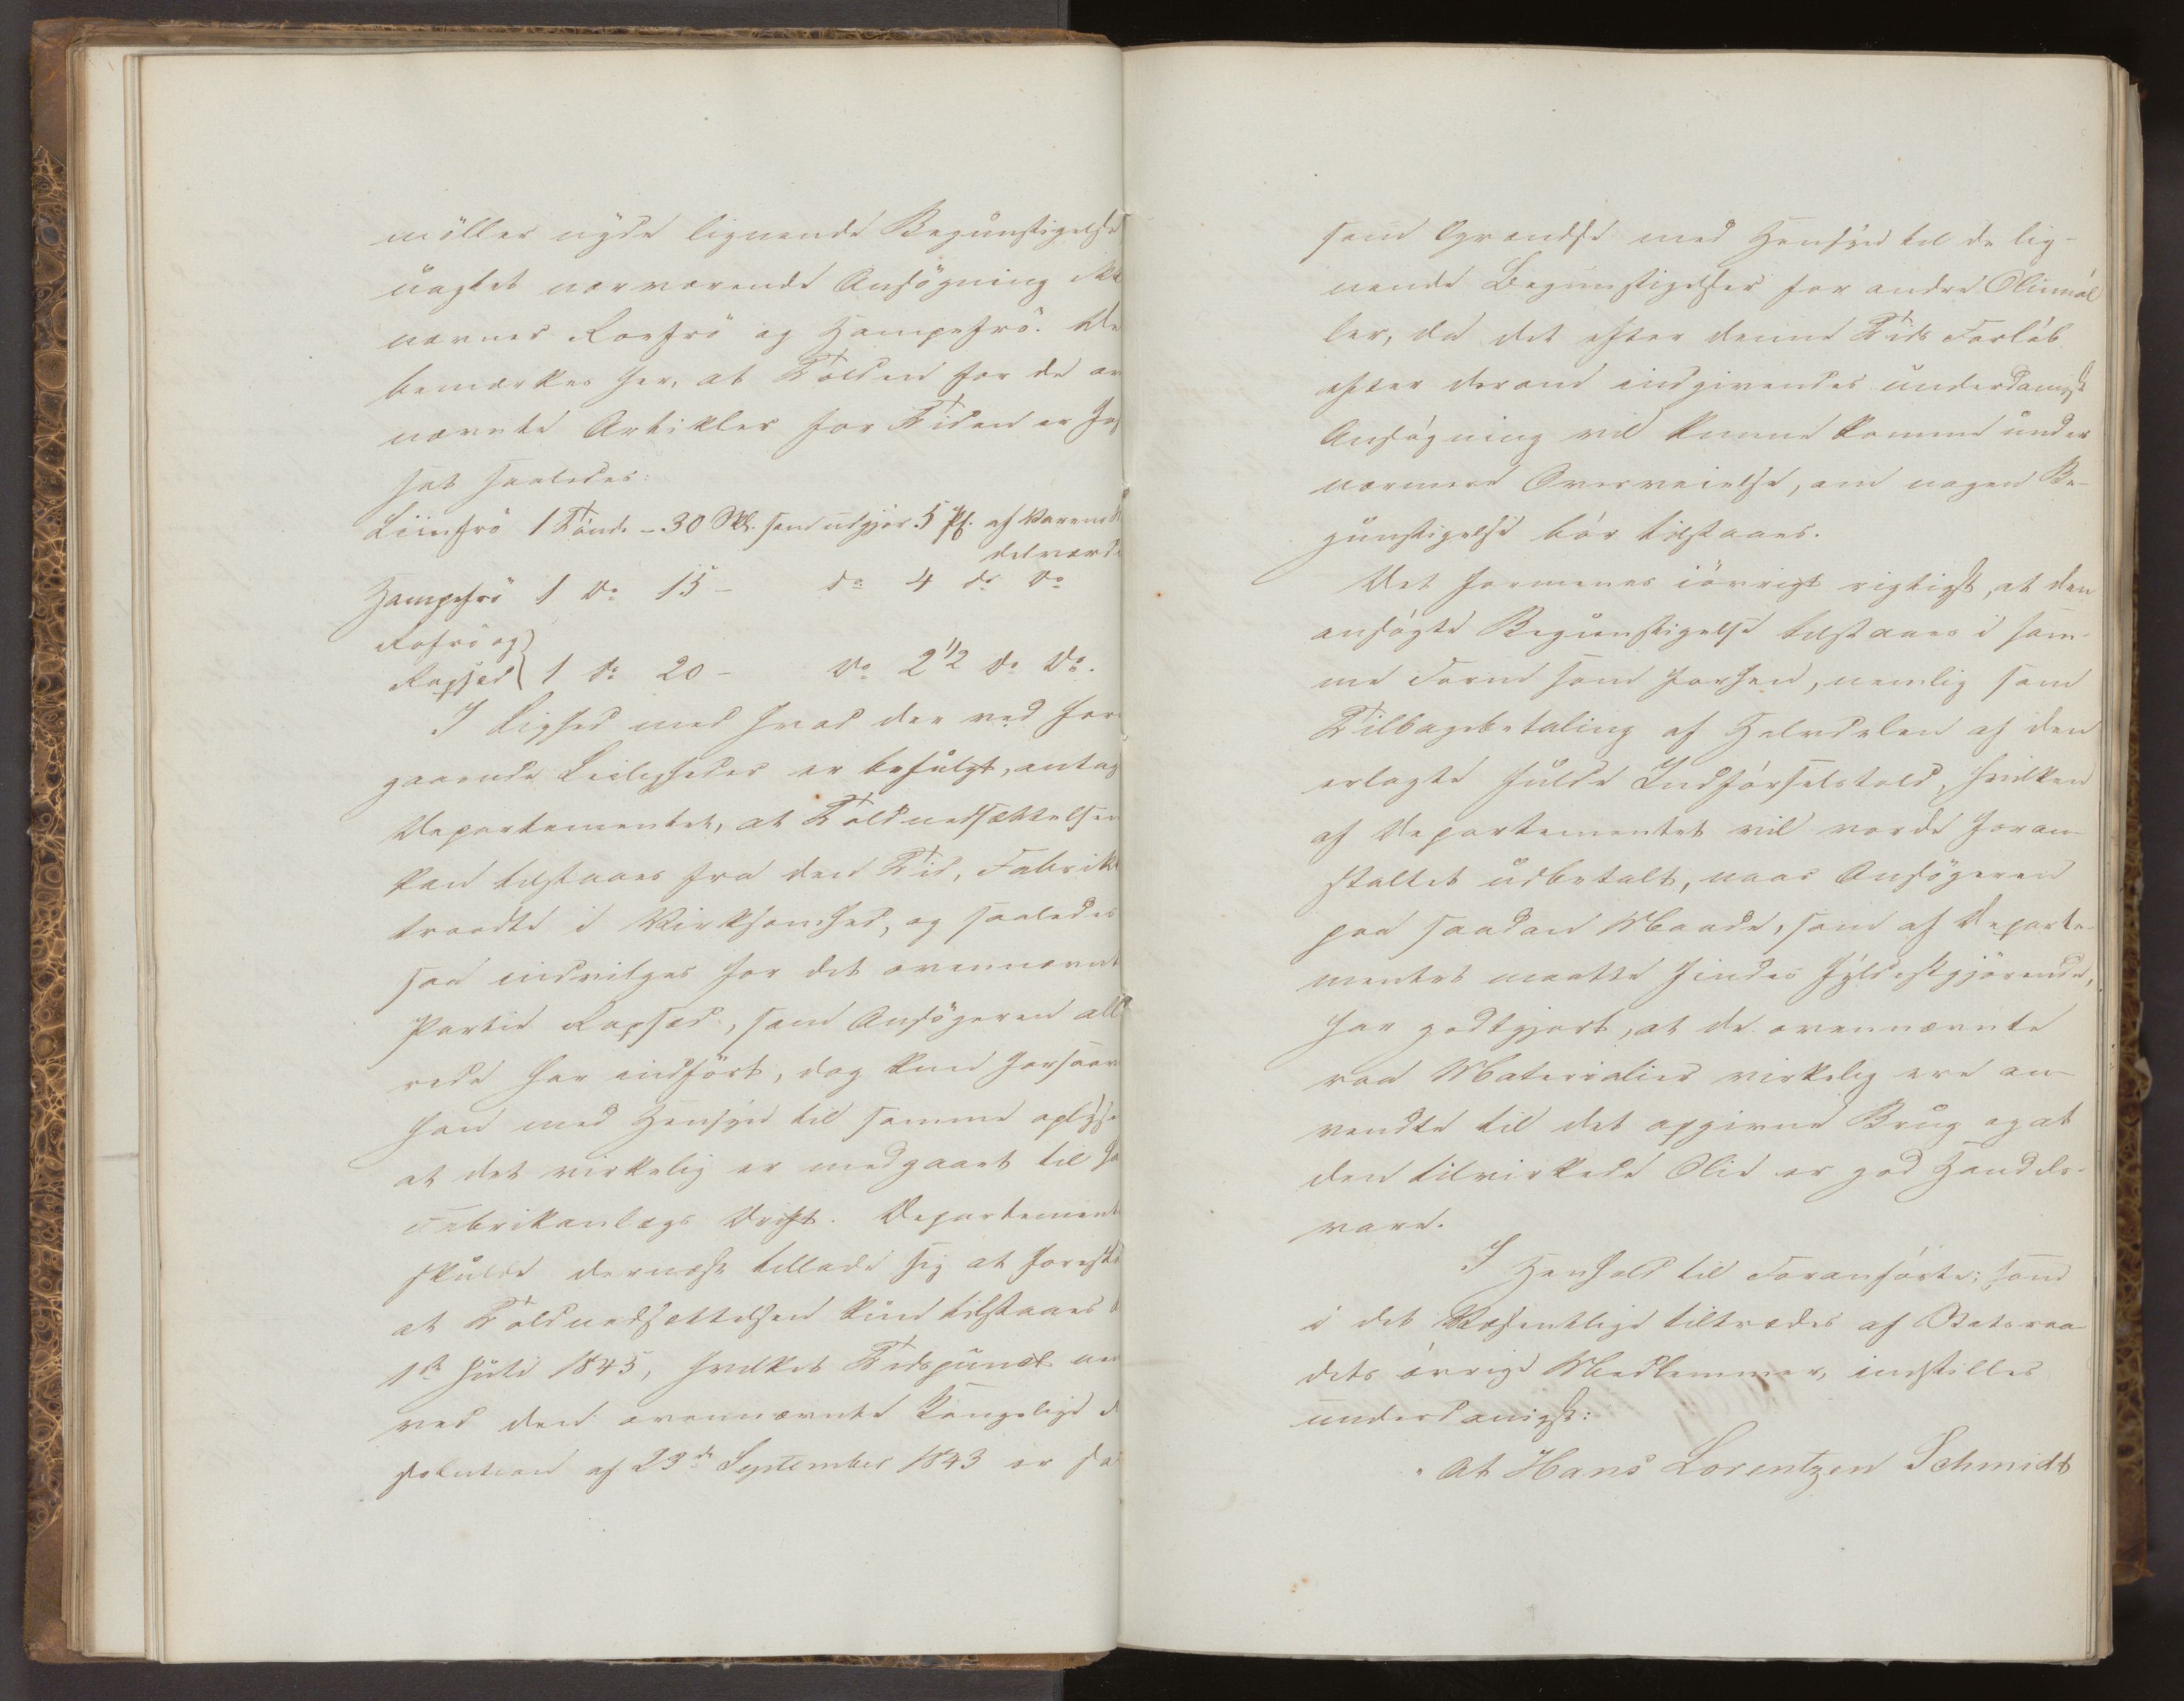 möller nyde lignende Begunstigelse
uagtet nærværende Ansögning ikk
nævner Roefrö og Hampefrö. De
bemærkes her, at Tolden for de ov
nævnte Artikler for Tiden er fast
sat saaledes:
Liinfrö 1 Tönde - 30 Sk. som udgjör 5 pf. af Varens
delværd
Hampefrö 1 do 15 - do 4 do do
Rofrö og
Rapsæd 1 do 20 - do 2 1/2 do do.
I Lighed med hvad der ved fore
gaaende Leiligheder er befulgt, antag
Departementet, at Toldnedsættelsen
kan tilstaaes fra den Tid, Fabrikk
traadte i Virksomhed, og saaledes
saa indvilges for det ovennævnte
Partie Rapsæd, som Ansögeren alle
rede har indfört, dog kun forsaav
han med Hensyn til samme oplyse
at det virkelig er medgaaet til ha
Fabrikanlægs Drift. Departement
skulde dernæst tillade sig at foresla
at Toldnedsættelsen kun tilstaaes
1ste Juli 1845, hvilket Tidspunct
ved den ovennævnte Kongelige
solution af 23de September 1843 er sa
som Grændse med Hensyn til de lig-
nende Begunstigelser for andre Oliemöl
ler, da det efter denne Tids Forlöb
efter derom indgivendes underdanigst
Ansögning vil kunne komme under
nærmere Overveielse, om nogen Be-
gunstigelse bör tilstaaes.
Det formenes iövrigt rigtigst, at den
ansögte Begunstigelse tilstaaes i sam-
me Form som forhen, nemlig som
Tilbagebetaling af Halvdelen af den
erlagte fulde Indförselstold, hvilken
af Departementet vil vorde foran-
staltet udbetalt, naar Ansögeren
paa saadan Maade, som af Departe-
mentet maatte findes fyldestgjörende,
har godtgjort, at de ovennævnte
raa Materialier virkelig ere an-
vendte til det opgivne Brug og at
den tilvirkede Olie er god Handels-
vare.
I Henhold til Foranförte, som
i det Væsentlige tiltrædes af Statsraa-
dets övrige Medlemmer, indstilles
underdanigst:
"At Hans Lorentzen Schmidt